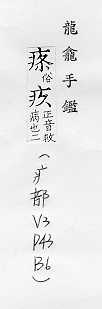 龍龕手鑑
俗疚正音救
病也二
(疒部
V3
P43
B6)